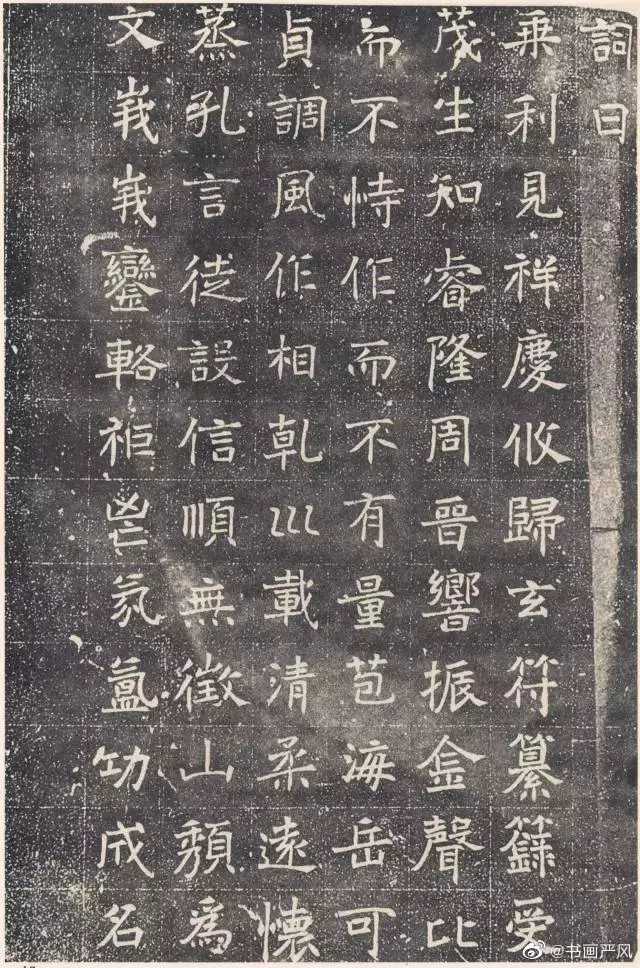 詞曰
乗利見祥慶攸歸玄符纂籙受
茂生知睿隆周晉響振金聲比
而不恃作而不有量苞海岳可
貞調風作相乹巛載清柔遠懷
蒸孔言徒設信順無徵山頹為
文峩峩鑾輅秬鬯氛氳功成名
@书画严风